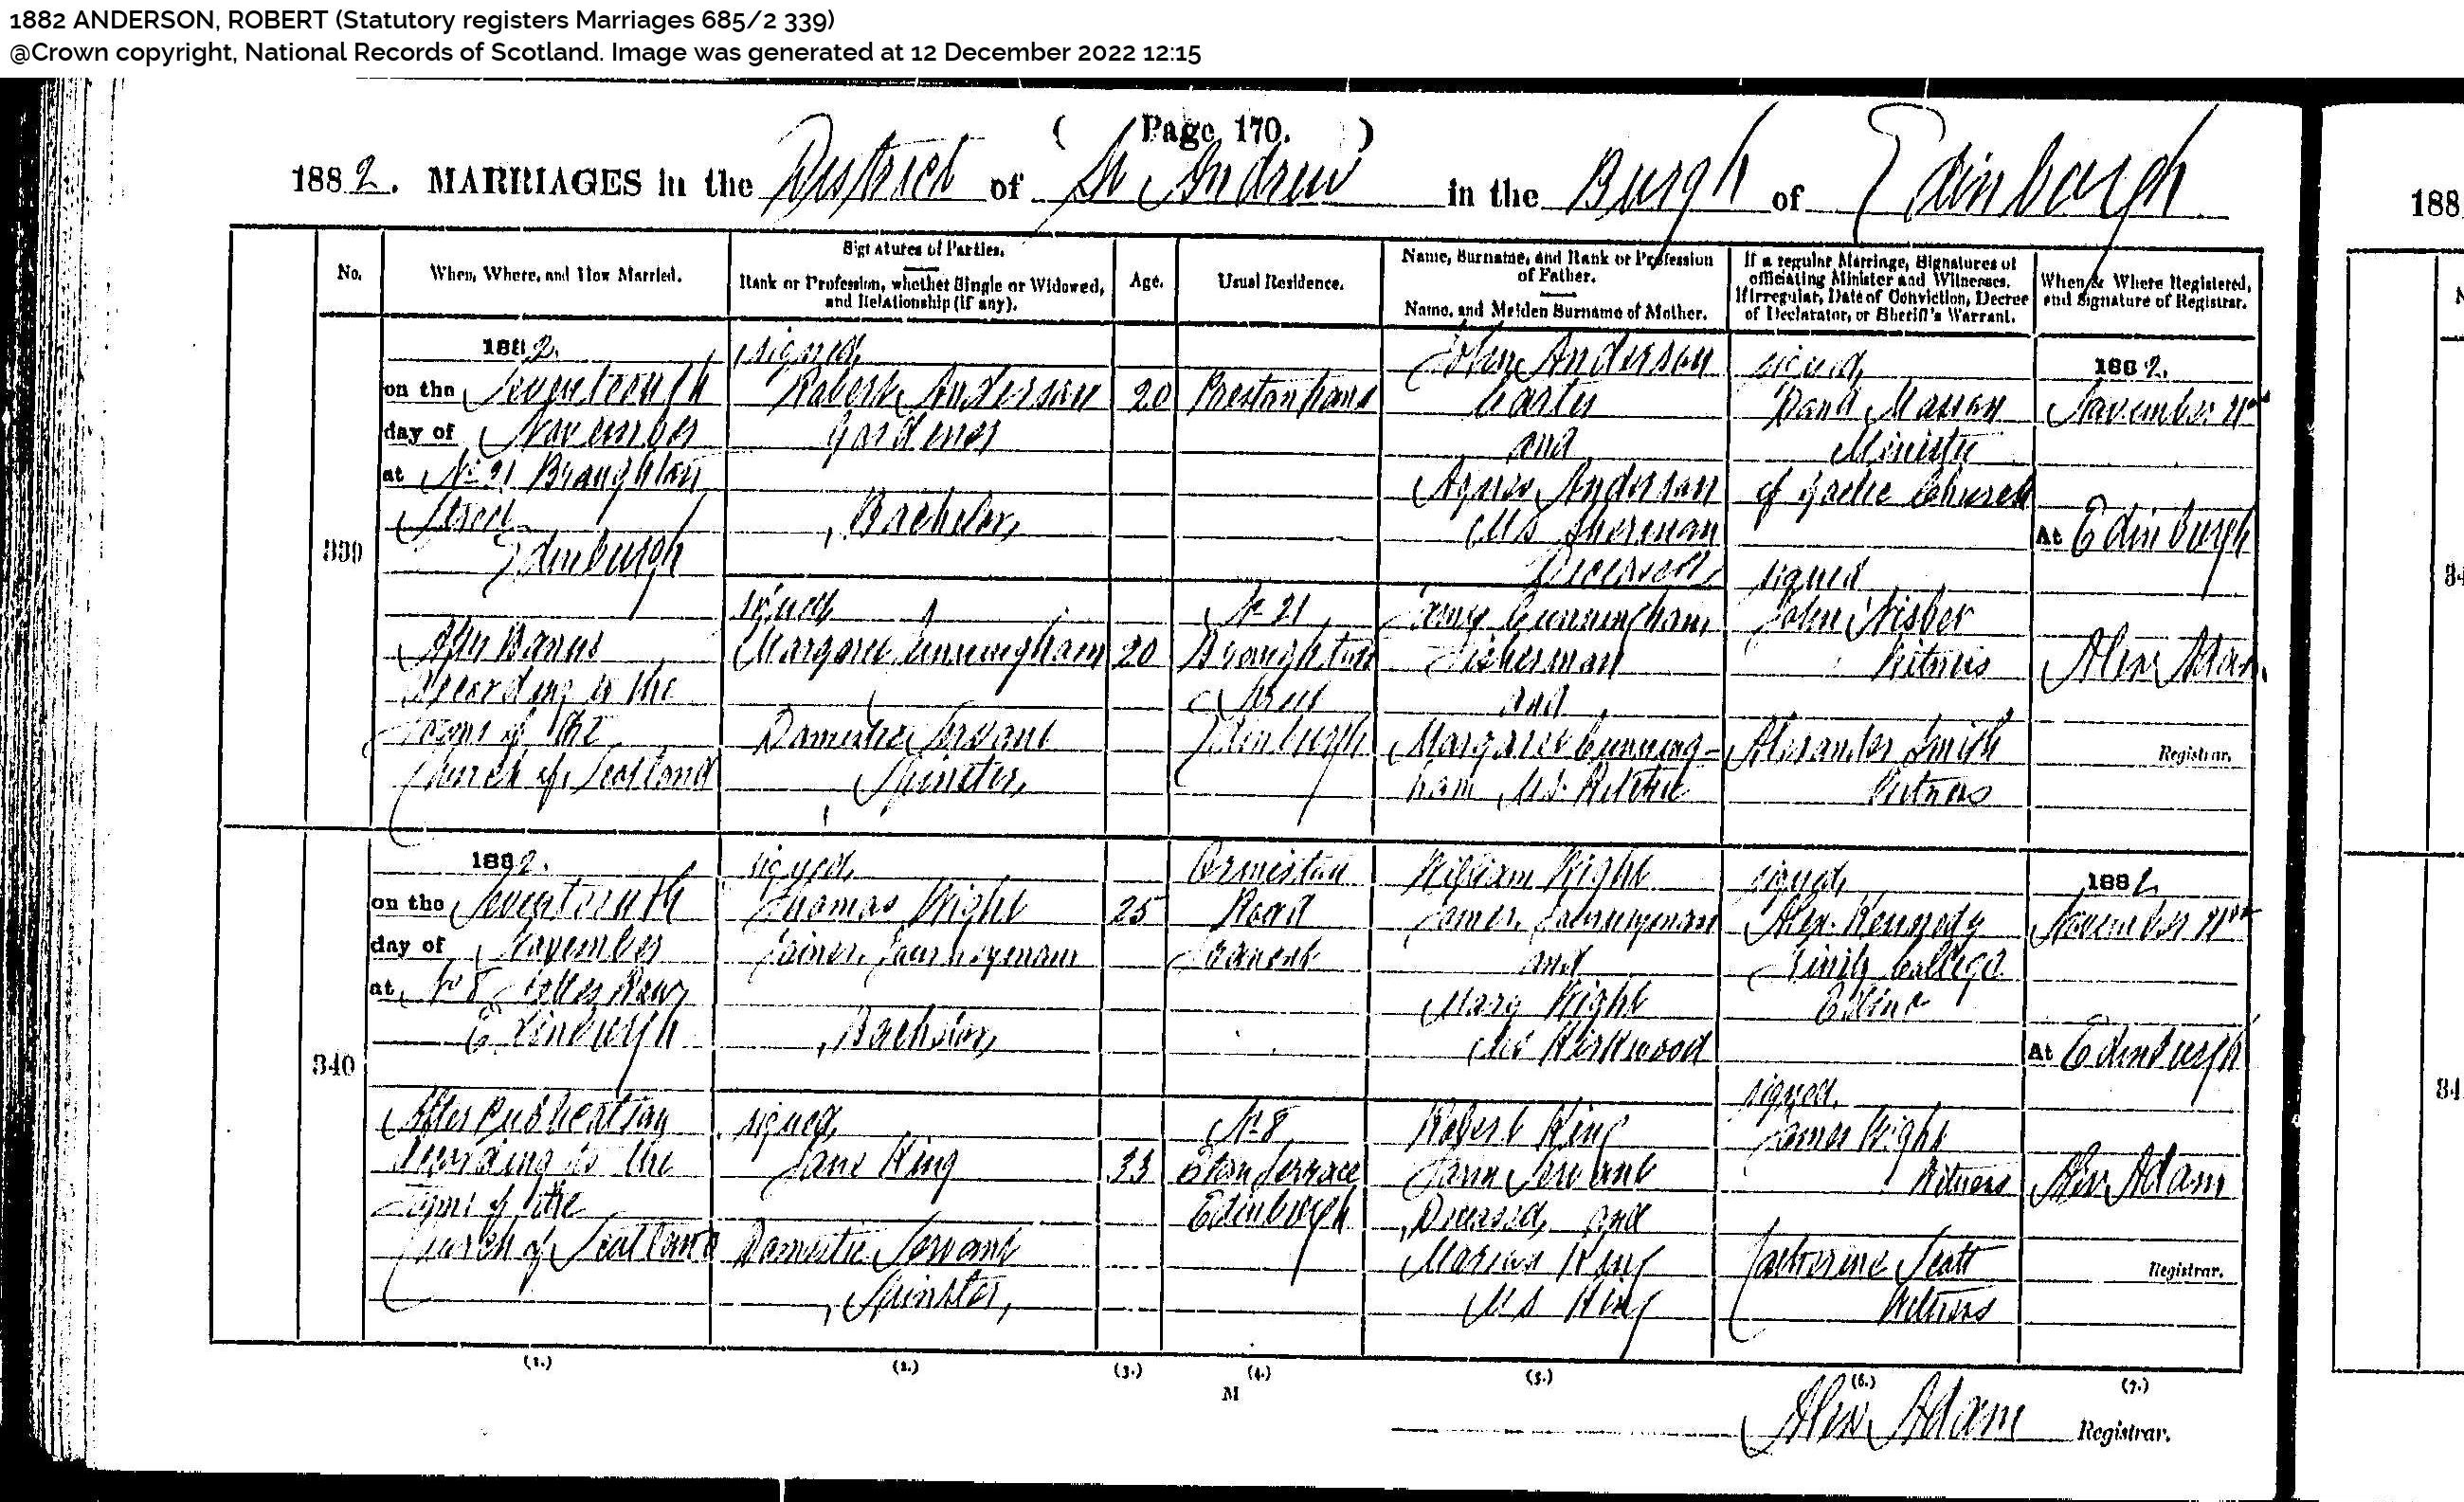 1882 ANDERSON, ROBERT (Statutory registers Marriages 685/2 339)
@Crown copyright, National Records of Scotland. Image was generated at 12 December 2022 12:15
( Page 170. )
1882. MARRIAGES in the District of St Andrew in the Burgh of Edinburgh
188
No.
When, Where, and How Married.
Signatures of Parties.
Rank or Profession, whether Single or Widowed,
and Relationship (if any).
Age.
Usual Residence.
Name, Surname, and Rank or Profession
of Father.
Name, and Maiden Surname of Mother.
If a regular Marriage, Signatures of
officiating Minister and Witnesses.
If Irregular, Date of Conviction, Decree
of Declarator, or Sheriff's Warrant.
When & Where Registered,
and Signature of Registrar.
339
1882.
on the Seventeenth
day of November
at No 21 Broughton
Street
Edinburgh
After Banns
According to the
Forms of the
Church of Scotland
signed,
Robert Anderson
Gardener
Bachelor,
signed
Margaret Cunningham
Domestic Servant
Spinster,
20
20
Prestonpans
No 21
Broughton
Street
Edinburgh
John Anderson
Carter
and
Agnes Anderson
MS Sherman
Deceased,
Cunningham,
Fisherman
and
Margaret Cunning-
ham M.S. Ritchie
signed,
David Masson
Minister
of Gaelic Church
signed
John Nisbet
Witness
Alexander Smith
Witness
1882.
November 21st
At Edinburgh
Alex Adam.
Registrar.
340
1882.
on the Seventeenth
day of November
at No 8
Edinburgh
After Publication
According to the
Forms of the
Church of Scotland
signed,
Thomas Wight
Joiner, Journeyman
Bachelor,
signed,
Jane King
Domestic Servant
Spinster,
25
33
Ormiston
Road
Tranent
No 8
Eton Terrace
Edinburgh
William Wight
Joiner, Journeyman
and
Mary Wight
MS Kirkwood
Robert King
Farm Servant
Deceased, and
Marion King
MS King
signed,
Alex. Kennedy
College
signed,
James Wight
Witness
Catherine Scott
Witness
1882
November 21st
At Edinburgh
Alex Adam
Registrar.
(1.) (2.) (3.) (4.) (5.) (6.) (7.)
M
Alex Adam Registrar.